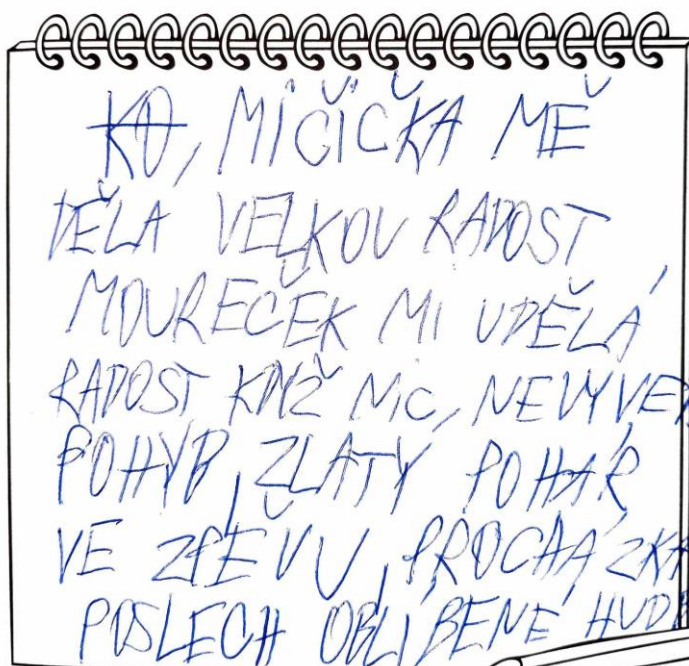 KO, MIČIČKA MĚ
DĚLA VELKOU RADOST
MOUREČEK MI UDĚLÁ
RADOST KDYŽ NIC, NEVYVED
POHYB, ZLATÝ POHÁR
VE ZPĚVU, PROCHÁZKA
POSLECH OBLÍBENÉ HUDB